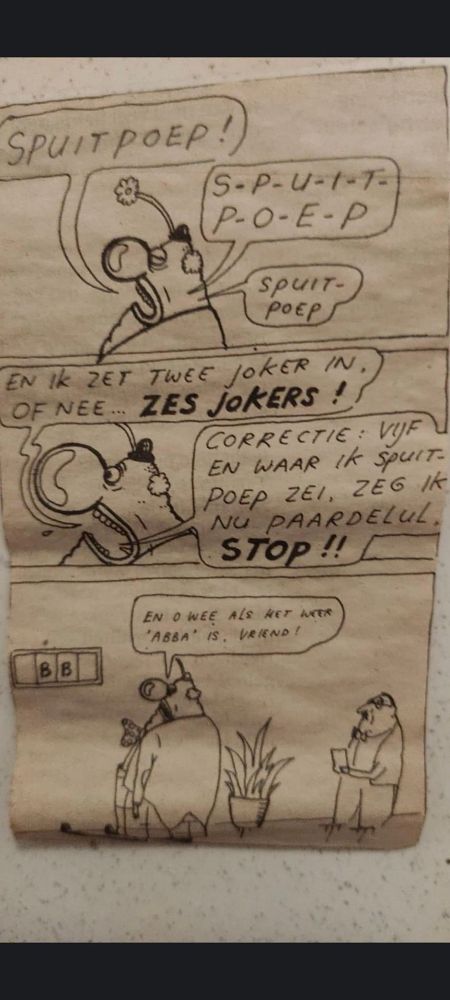 SPUITPOEP!
S-P-U-I-T-
P-O-E-P
SPUIT-
POEP
EN IK ZET TWEE JOKER IN,
OF NEE... ZES JOKERS!
CORRECTIE: VIJF
EN WAAR IK SPUIT-
POEP ZEI, ZEG IK
NU PAARDELUL.
STOP!!
EN O WEE ALS HET WEER
'ABBA' IS, VRIEND!
BB